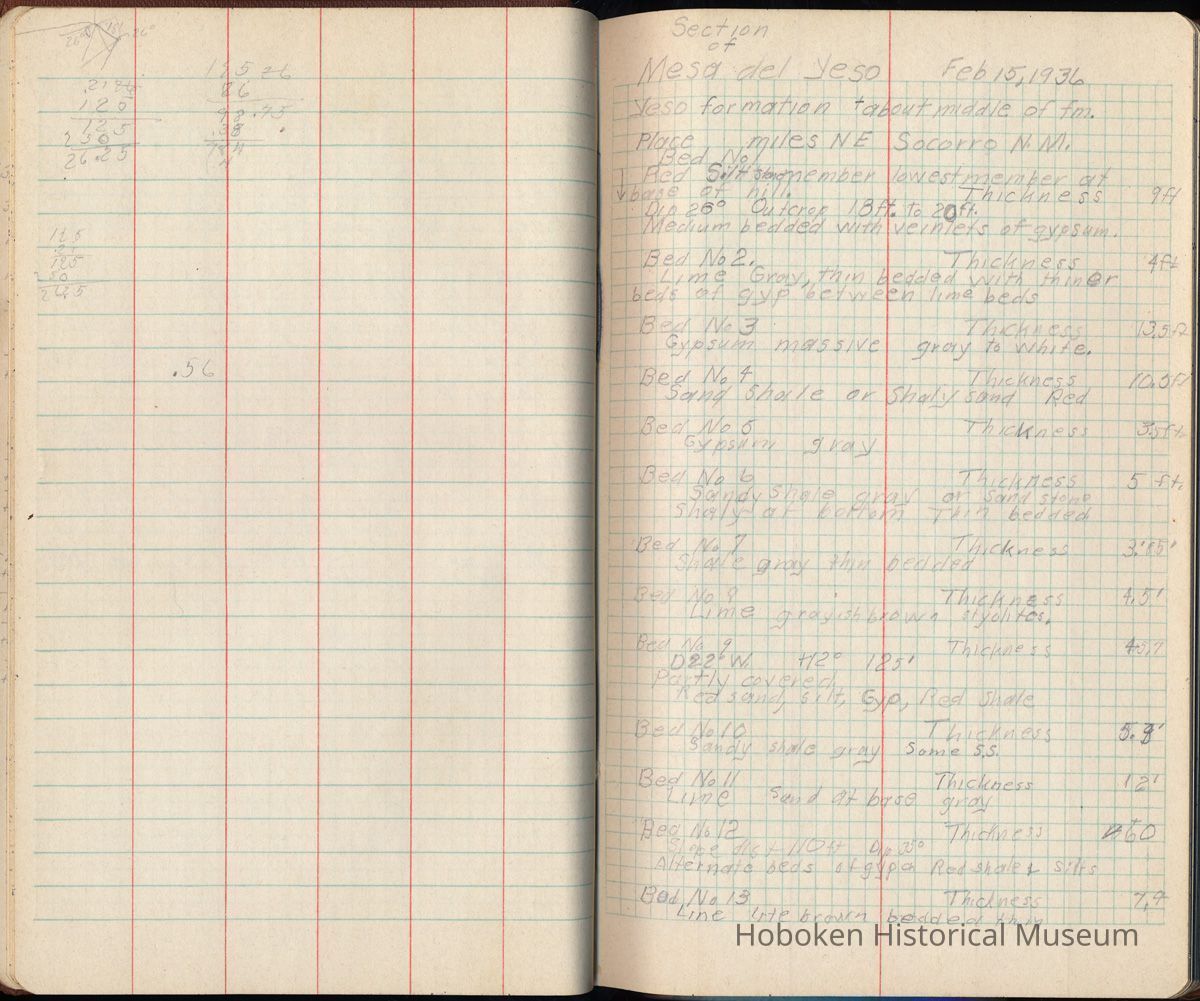 26°
125
26
125
250
.56
Section
of
Mesa del Yeso Feb 15, 1936
Yeso formation +about middle of fm.
Place miles NE Socorro N.M.
Bed No 1
Red Siltstone member lowest member at
base of hill. Thickness 9ft
Dip 26° Outcrop 18ft. to 20ft.
Medium bedded with veinlets of gypsum.
Bed No 2. Thickness 4ft
Lime Gray, thin bedded with thiner
beds of gyp between lime beds
Bed No 3 Thickness 13.5ft
Gypsum massive gray to white.
Bed No 4 Thickness 10.5ft
Sand Shale or Shaly sand Red
Bed No 5 Thickness 3.5ft.
Gypsum gray
Bed No 6 Thickness 5 ft.
Sandy Shale gray or sandstone
Shaly at bottom Thin bedded
Bed No 7 Thickness
Shale gray thin bedded
Bed No 8 Thickness 4.5'
Lime grayish brown styolites.
Bed No. 9 Thickness
D22° W. +12° 125'
Partly covered
Red sand, silt, Gyp, Red Shale
Bed No 10 Thickness
Sandy shale gray some s.s.
Bed No 11 Thickness 12'
Lime Sand at base gray
Bed No 12 Thickness 60
Slope dist 110ft Dip
Alternate beds of gyp Red shale + silts
Bed No 13 Thickness 7.4
Lime lite brown bedded thin
Hoboken Historical Museum